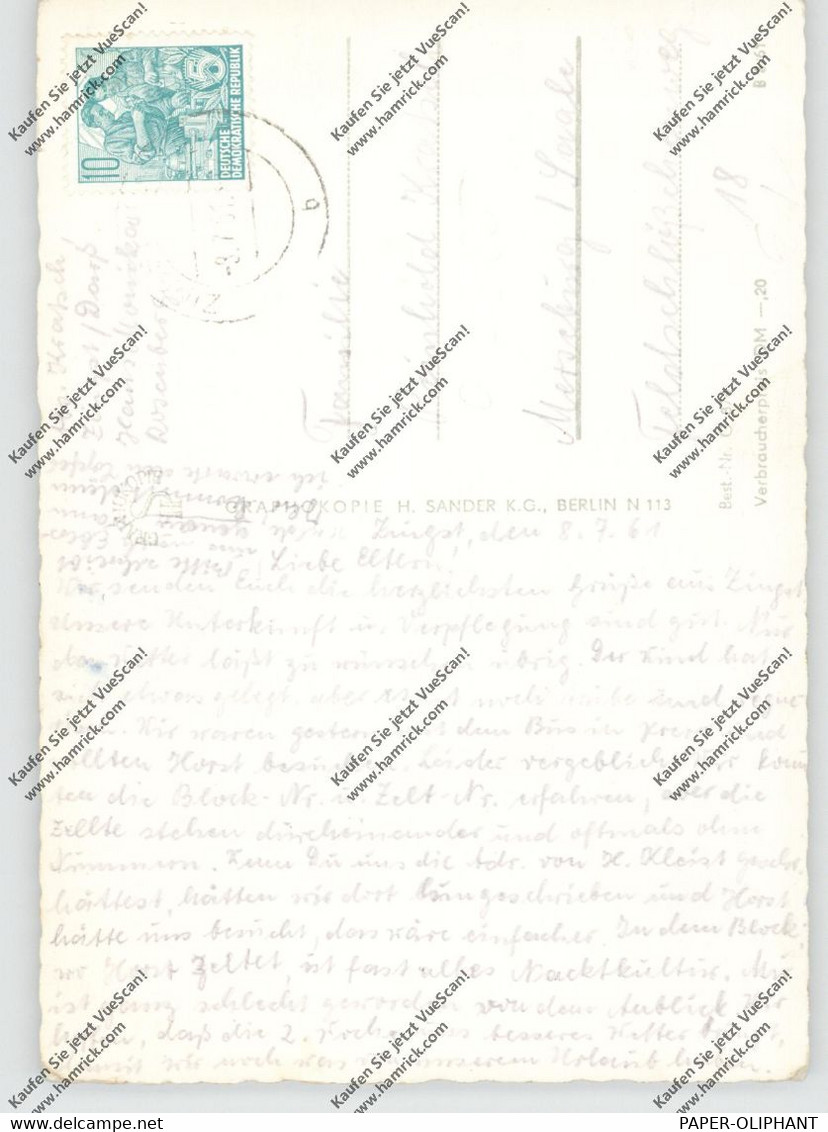 10
DEUTSCHE
DEMOKRATISCHE REPUBLIK
5
-8.7.61
b
Kratsch
Zingst / Darß
Haus Monika
Rosenberg
Familie
Reinhold
Merseburg / Saale
18
Best.-Nr.
Verbraucherpreis DM —,20
GRAPHOKOPIE H. SANDER K.G., BERLIN N 113
Zingst, den 8.7.61
Liebe Eltern!
Wir senden Euch die herzlichsten Grüße aus Zingst
Unsere Unterkunft u. Verpflegung sind gut. Nur
das Wetter läßt zu wünschen übrig. Der Wind hat
sich etwas gelegt, aber es ist noch trübe und regne-
Wir waren gestern mit dem Bus in Prerow und
wollten Horst besuchen. Leider vergeblich. Wir konn-
ten die Block-Nr. u. Zelt-Nr. erfahren, aber die
Zelte stehen durcheinander und oftmals ohne
Nummern. Wenn Du uns die Adr. von H. Kleist geschr.
hättest, hätten wir dort hingeschrieben und Horst
hätte uns besucht, das wäre einfacher. In dem Block,
wo Horst zeltet, ist fast alles Nacktkultur. Mir
ist ganz schlecht geworden von dem Anblick. Wir
hoffen, daß die 2. Woche uns besseres Wetter bringt,
damit wir noch was von unserem Urlaub haben.
Kaufen Sie jetzt VueScan!
www.hamrick.com
PAPER-OLIPHANT